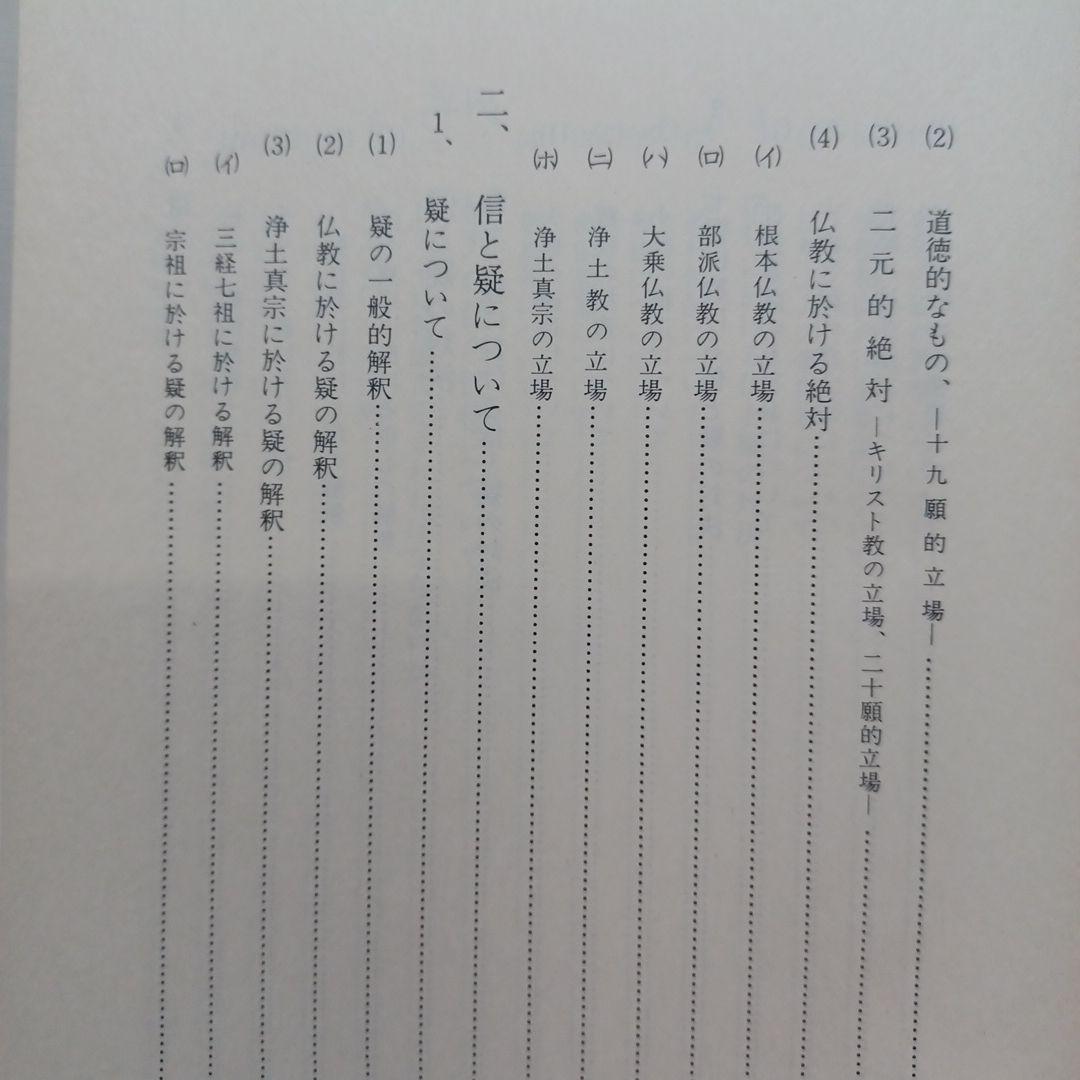 (2) 道徳的なもの、―十九願的立場―
(3) 二元的絶対―キリスト教の立場、二十願的立場―
(4) 仏教に於ける絶対
(イ) 根本仏教の立場
(ロ) 部派仏教の立場
(ハ) 大乗仏教の立場
(ニ) 浄土教の立場
(ホ) 浄土真宗の立場
二、信と疑について
1、疑について
(1) 疑の一般的解釈
(2) 仏教に於ける疑の解釈
(3) 浄土真宗に於ける疑の解釈
(イ) 三経七祖に於ける解釈
(ロ) 宗祖に於ける疑の解釈